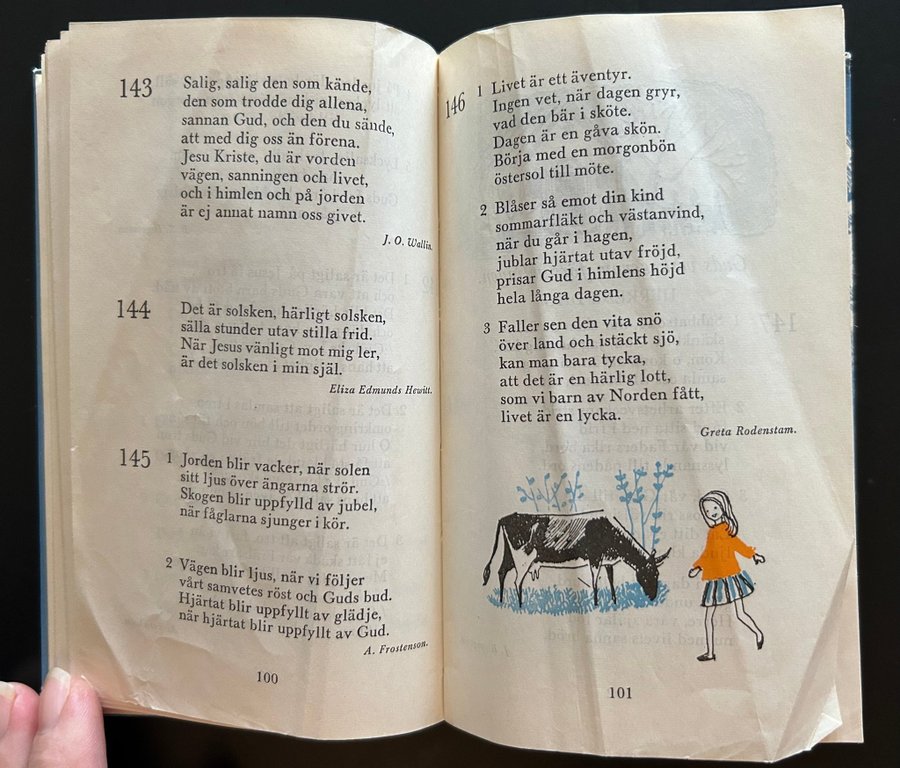 143
Salig, salig den som kände,
den som trodde dig allena,
sannan Gud, och den du sände,
att med dig oss än förena.
Jesu Kriste, du är vorden
vägen, sanningen och livet,
och i himlen och på jorden
är ej annat namn oss givet.
J. O. Wallin.
144
Det är solsken, härligt solsken,
sälla stunder utav stilla frid.
När Jesus vänligt mot mig ler,
är det solsken i min själ.
Eliza Edmunds Hewitt.
145
1 Jorden blir vacker, när solen
sitt ljus över ängarna strör.
Skogen blir uppfylld av jubel,
när fåglarna sjunger i kör.
2 Vägen blir ljus, när vi följer
vårt samvetes röst och Guds bud.
Hjärtat blir uppfyllt av glädje,
när hjärtat blir uppfyllt av Gud.
A. Frostenson.
100
146
1 Livet är ett äventyr.
Ingen vet, när dagen gryr,
vad den bär i sköte.
Dagen är en gåva skön.
Börja med en morgonbön
östersol till möte.
2 Blåser så emot din kind
sommarfläkt och västanvind,
när du går i hagen,
jublar hjärtat utav fröjd,
prisar Gud i himlens höjd
hela långa dagen.
3 Faller sen den vita snö
över land och istäckt sjö,
kan man bara tycka,
att det är en härlig lott,
som vi barn av Norden fått,
livet är en lycka.
Greta Rodenstam.
101